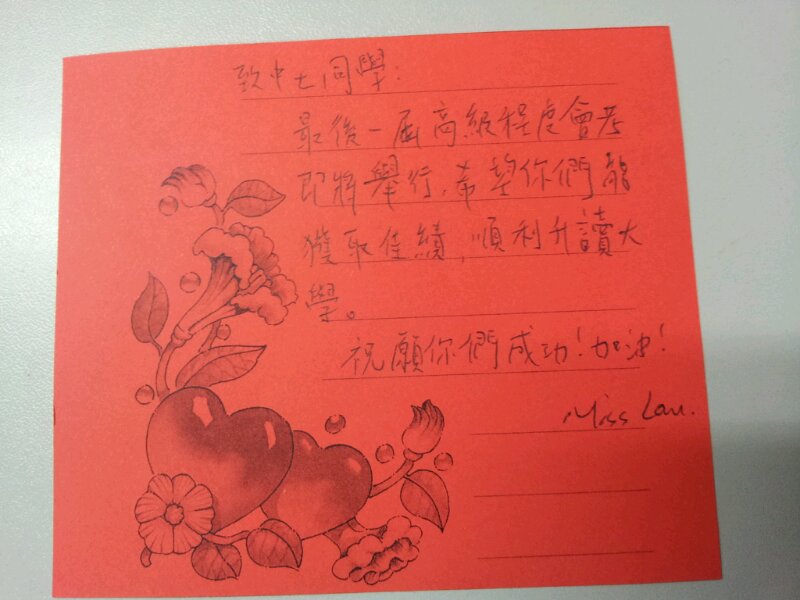 致中七同學:
最後一屆高級程度會考
即將舉行,希望你們能
獲取佳績,順利升讀大
學。
祝願你們成功!加油!
Miss Lau.